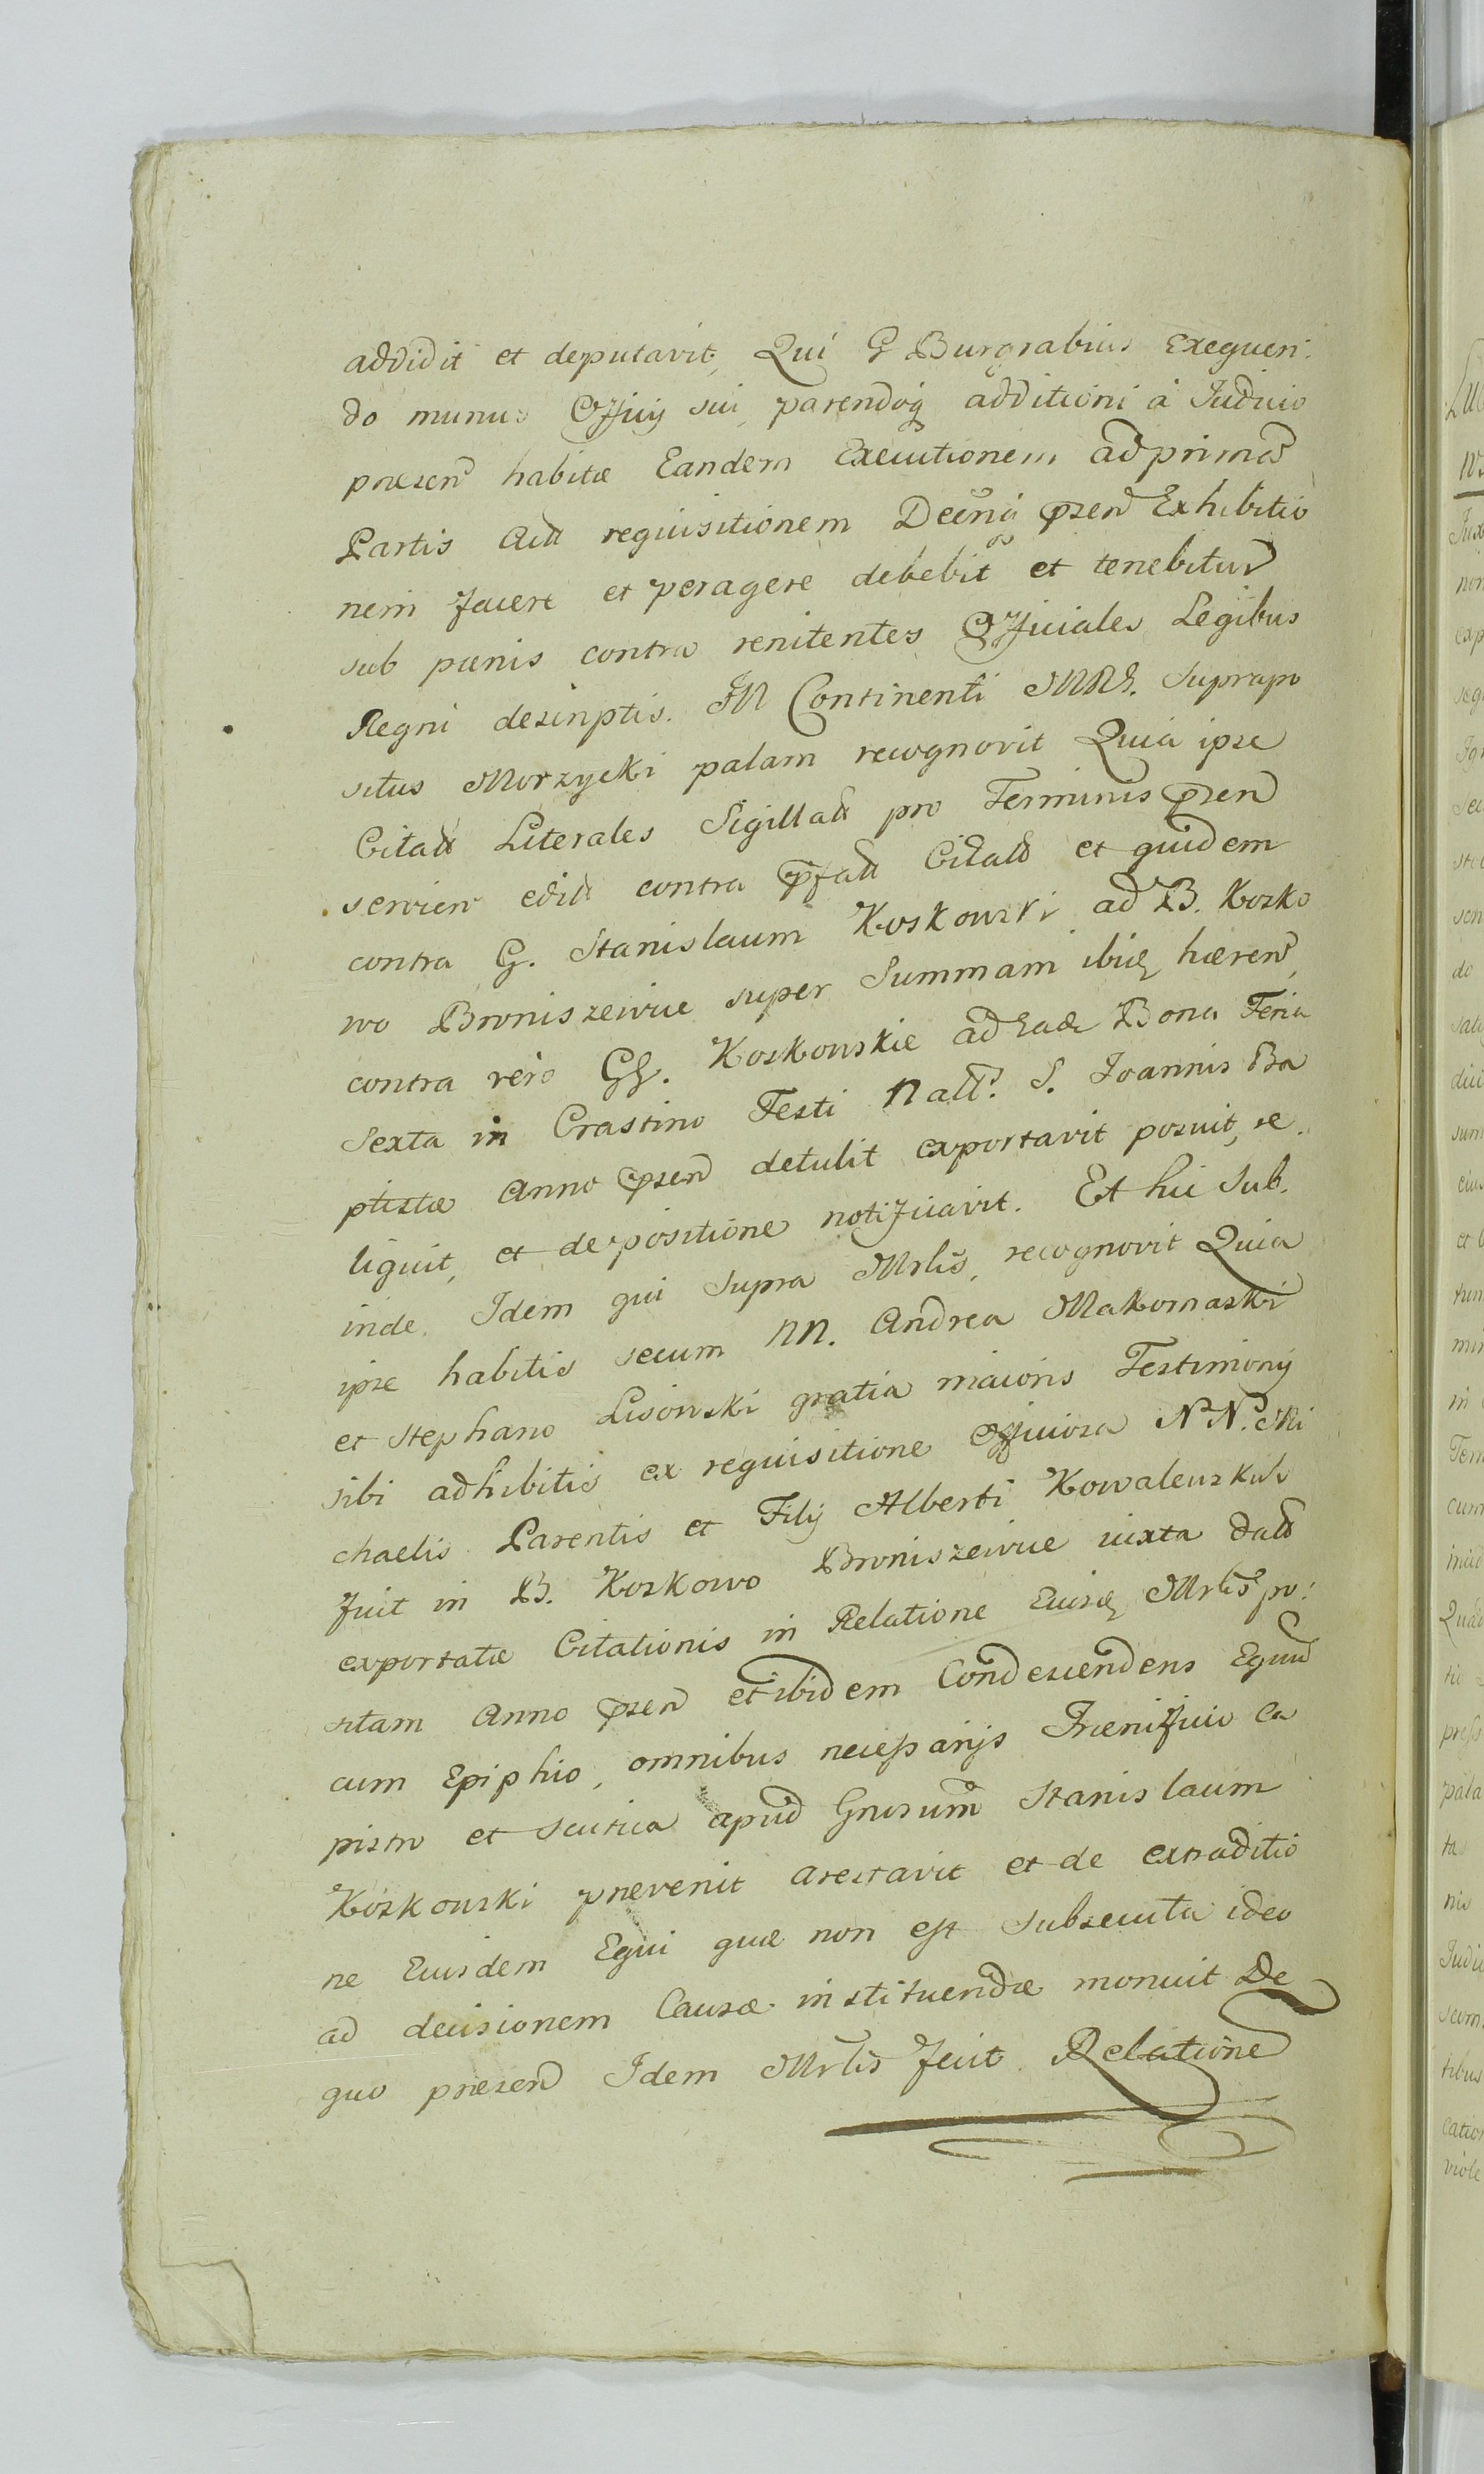 addidit et deputavit, Qui G Burgrabius Exequen
do munus Officij sui, parendoq additioni à Judicio
præsen habitæ Eandem Executionem ad primã
Partis Act requisitionem Decrĩ pñsen Exhibitio
nem facere et peragere debebit et tenebitur
sub pænis contra renitentes Officiales Legibus
Regni descriptis. IN Continenti MRS. suprapo
situs Morzycki palam recognovit Quia ipse
Citatt Literales Sigillatt pro Terminis pñsen
servien edict contra pfatt Citatt et quidem
contra G. Stanislaum Koskowski ad B. Kosko
wo Broniszewice super Summam ibiq hæren,
contra verò GG. Koskowskie ad Eade Bona Feria
Sexta in Crastino Festi Natt. S. Joannis Ba
ptistæ Anno pñsen detulit exportavit posuit, re
liquit, et depositione notificavit. Et hic Sub
inde. Idem qui supra Mrlis, recognovit Quia
ipse habitis secum NN. Andrea Makomaski
et Stephano Lisowski gratia maioris Testimonij
sibi adhibitis ex requisitione officiosa NN. Mi
chaelis Parentis et Filij Alberti Kowalewskich
fuit in B. Koskowo Broniszewice iuxta datt
exportatæ Citationis in Relatione Eiusq Mrlis po:
sitam Anno pñsen et ibidem Condescendens Equũ
cum Epiphio, omnibus necessarijs Frænificio Ca
pistro et scutica apud Gnosum Stanislaum
Koskowski prævenit arestavit et de extraditio
ne Eiusdem Equi quæ non est subsecuta ideo
ad decisionem Causæ instituendæ monuit De
quo præsen Idem Mrlis fecit Relatione